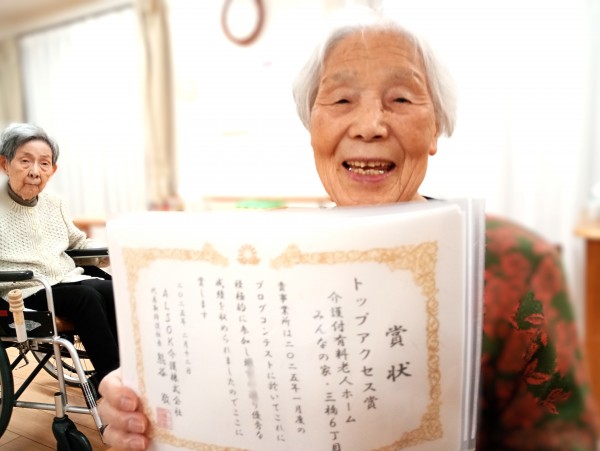 賞状
トップアクセス賞
介護付有料老人ホーム
みんなの家・三橋6丁目
貴事業所は二〇二五年一月度の
ブログコンテストに於いてこれに
積極的に参加し 優秀な
成績を収められましたのでここに
賞します
二〇二五年二月十二日
ALSOK介護株式会社
代表取締役社長 熊谷 敬